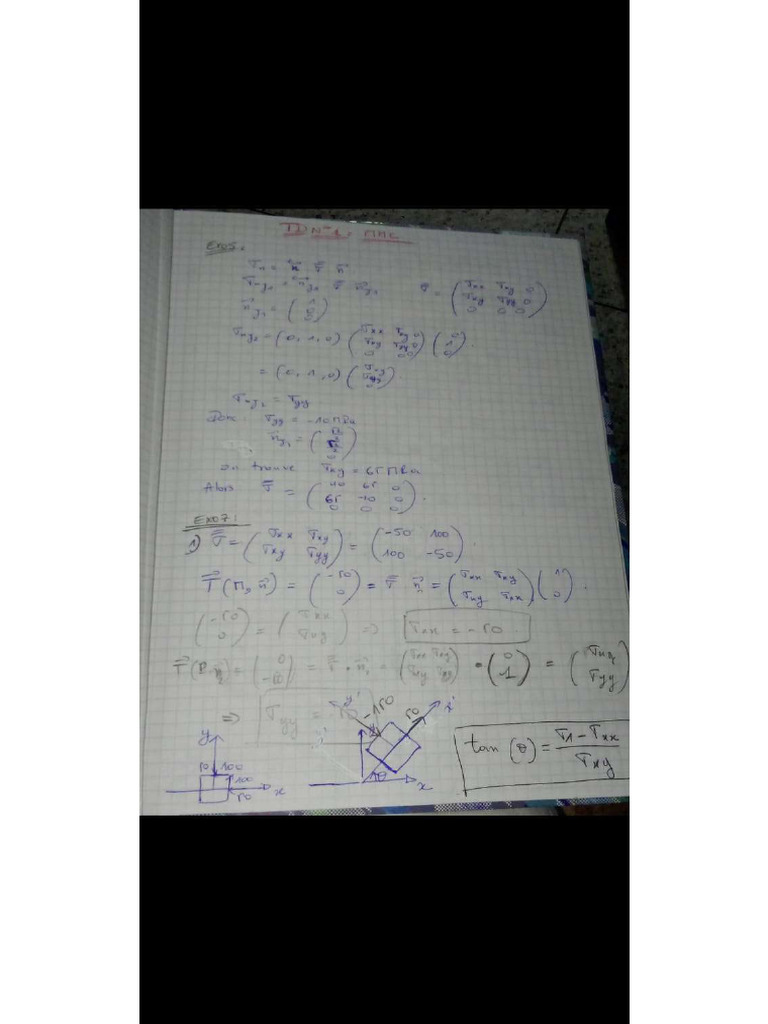 TD N° 1 : MMC
Exo5 :
σn = n σ n
σny2 = ny2 σ ny2 σ = (σxx σxy 0 / σxy σyy 0 / 0 0 0)
σny2 = (0, 1, 0) (σxx σxy 0 / σxy σyy 0 / 0 0 0) (0 / 1 / 0).
= (0, 1, 0) (σxy / σyy / 0)
σny2 = σyy
Donc σyy = -10 MPa
on trouve σxy = 65 MPa
Alors σ = (40 65 0 / 65 -10 0 / 0 0 0).
Exo7 :
1) σ = (σxx σxy / σxy σyy) = (-50 100 / 100 -50).
T(M, n) = (-50 / 0) = σ . n = (σxx σxy / σxy σxx) (1 / 0).
(-50 / 0) = (σxx / σxy) => σxx = -50
= (0 / 1) = (σxy / σyy)
=> σyy =
y y' -150 50 x'
50 100 100 50 x θ x
tan(θ) = (σ1 - σxx) / σxy